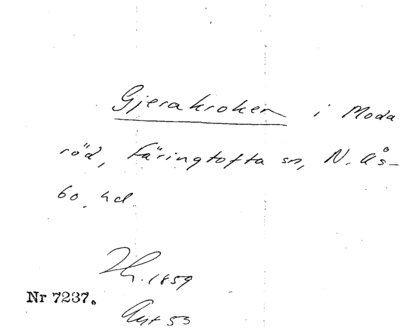 Gjerakroken i Moda
röd, Färingtofta sn, N. Ås-
bo. hd.
1859
Nr 7237.
53